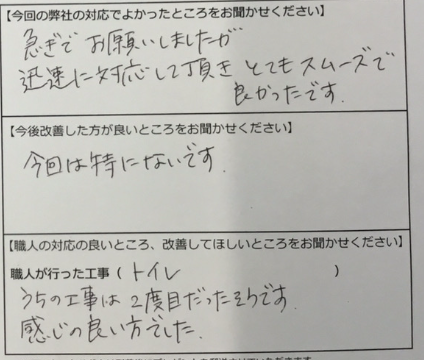 【今回の弊社の対応でよかったところをお聞かせください】
急ぎで お願いしましたが
迅速に対応して頂き とてもスムーズで
良かったです.
【今後改善した方が良いところをお聞かせください】
今回は特にないです.
【職人の対応の良いところ、改善してほしいところをお聞かせください】
職人が行った工事（ トイレ ）
うちの工事は 2度目だったそうです.
感じの良い方でした.